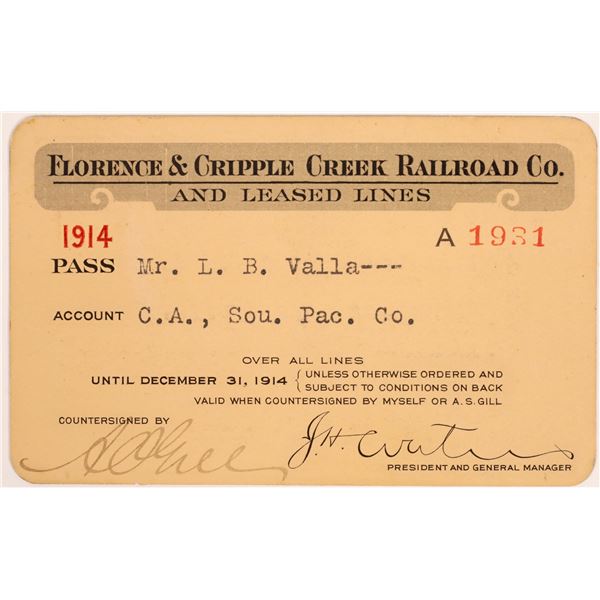 FLORENCE & CRIPPLE CREEK RAILROAD CO.
AND LEASED LINES
1914 A 1931
PASS Mr. L. B. Valla---
ACCOUNT C.A., Sou. Pac. Co.
OVER ALL LINES
UNTIL DECEMBER 31, 1914 { UNLESS OTHERWISE ORDERED AND
SUBJECT TO CONDITIONS ON BACK
VALID WHEN COUNTERSIGNED BY MYSELF OR A. S. GILL
COUNTERSIGNED BY
A S Gill J. H. Waters
PRESIDENT AND GENERAL MANAGER